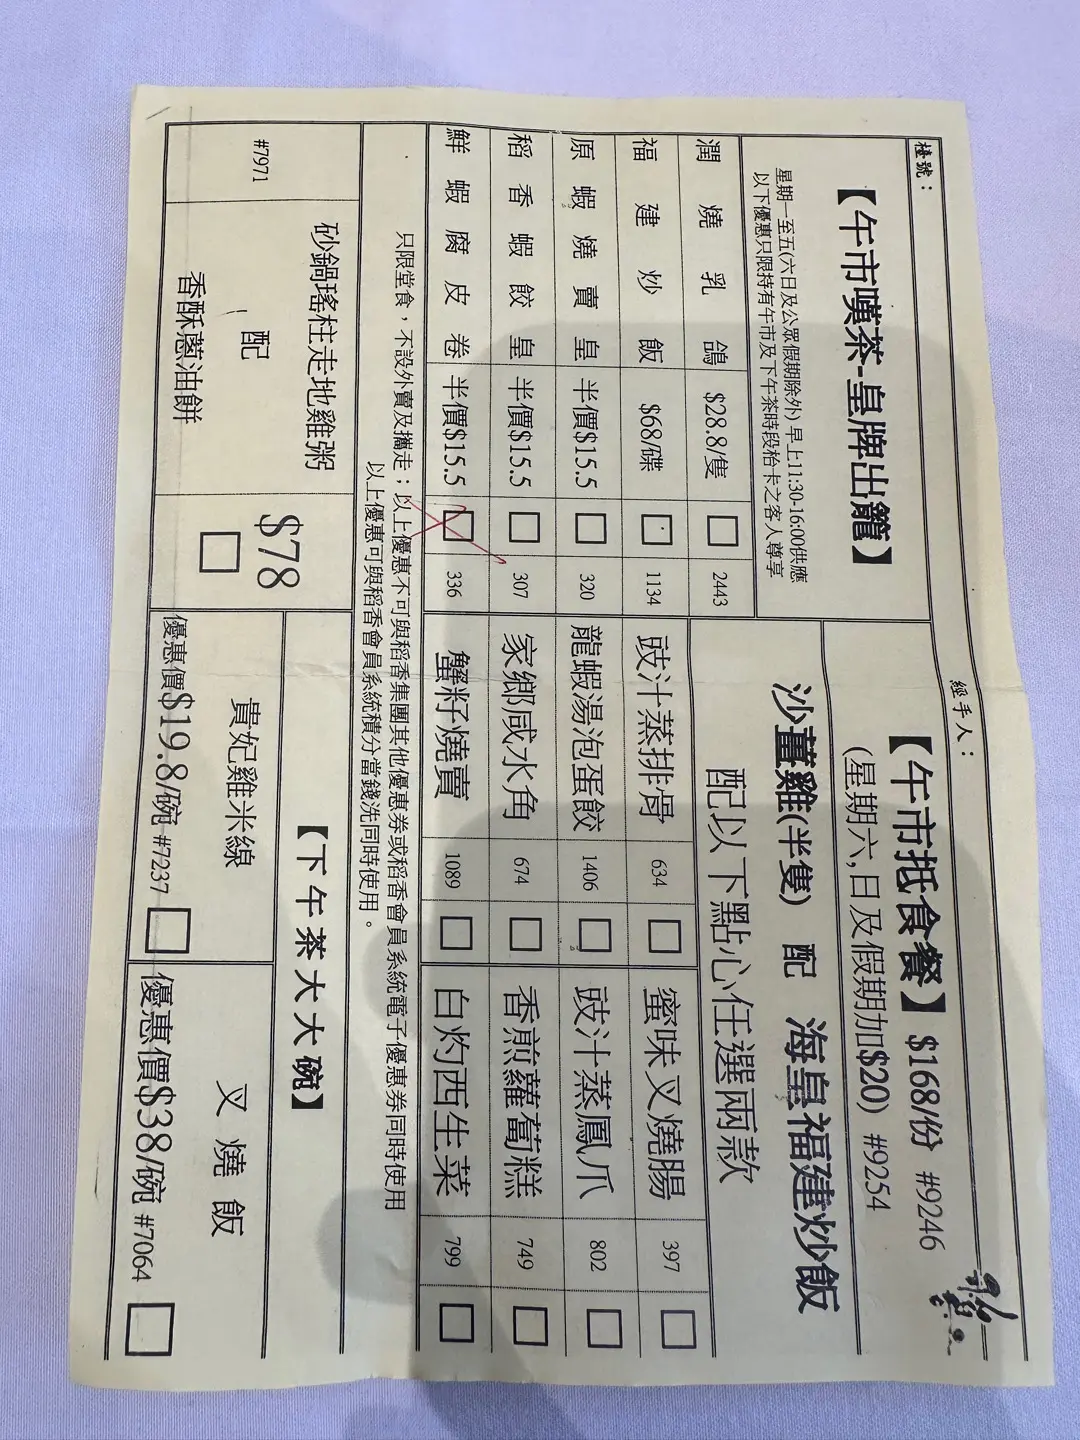 檯號：
經手人：
【午市嘆茶-皇牌出籠】
星期一至五(六日及公眾假期除外) 早上11:30-16:00供應
以下優惠只限持有午市及下午茶時段枱卡之客人尊享
潤燒乳鴿 $28.8/隻 □ 2443
福建炒飯 $68/碟 □ 1134
原蝦燒賣皇 半價$15.5 □ 320
稻香蝦餃皇 半價$15.5 □ 307
鮮蝦腐皮卷 半價$15.5 □ 336
【午市抵食餐】 $168/份 #9246
(星期六,日及假期加$20) #9254
沙薑雞(半隻) 配 海皇福建炒飯
配以下點心任選兩款
豉汁蒸排骨 634 □ 蜜味叉燒腸 397 □
龍蝦湯泡蛋餃 1406 □ 豉汁蒸鳳爪 802 □
家鄉咸水角 674 □ 香煎蘿蔔糕 749 □
蟹籽燒賣 1089 □ 白灼西生菜 799 □
只限堂食，不設外賣及攜走；以上優惠不可與稻香集團其他優惠券或稻香會員系統電子優惠券同時使用
以上優惠可與稻香會員系統積分當錢洗同時使用。
#7971
砂鍋瑤柱走地雞粥
配
香酥蔥油餅
$78
□
【下午茶大大碗】
貴妃雞米線
優惠價$19.8/碗 #7237 □
叉燒飯
優惠價$38/碗 #7064 □